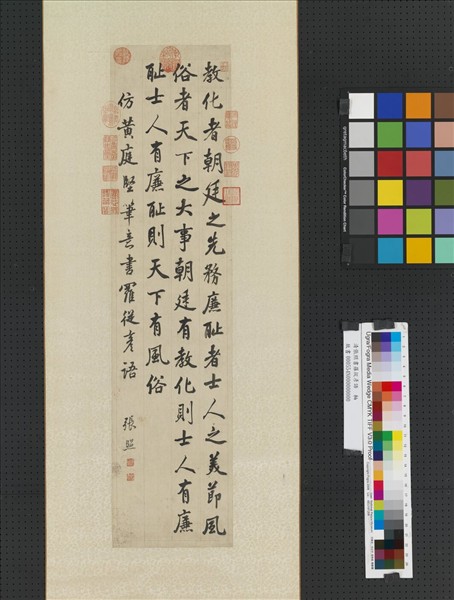 教化者朝廷之先務廉耻者士人之美節風
俗者天下之大事朝廷有教化則士人有廉
耻士人有廉耻則天下有風俗
仿黃庭堅筆意書羅從彥語
張照
Ugra/Fogra Media Wedge CMYK TIFF V3.0 Proof